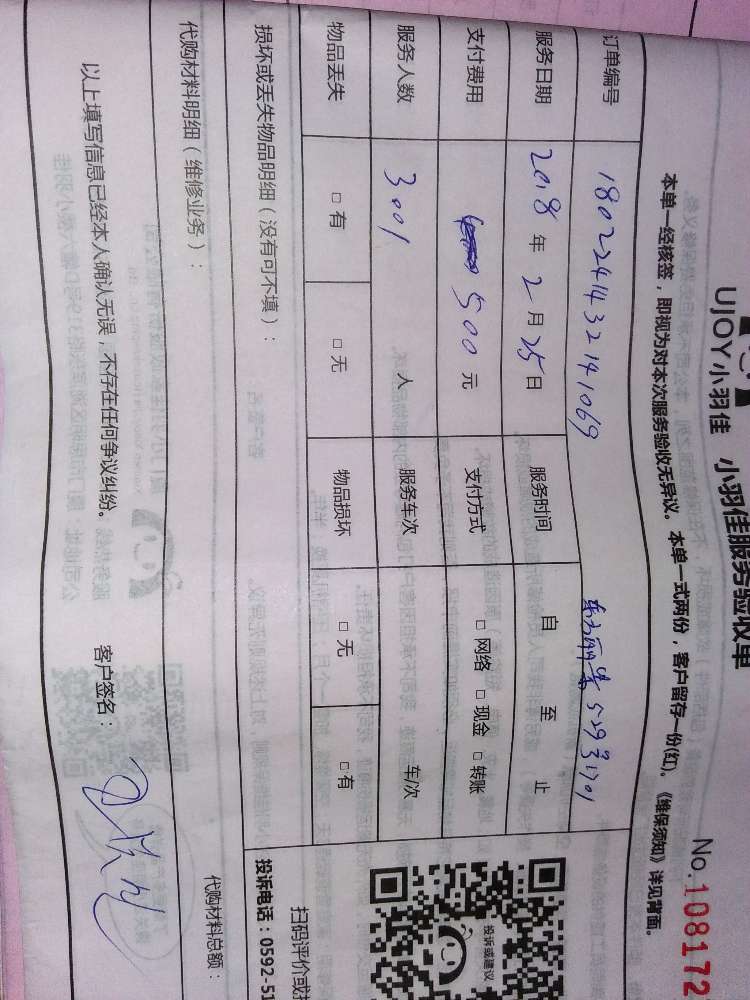 UJOY小羽佳 小羽佳服务验收单
No.108172
本单一经核签，即视为对本次服务验收无异议。本单一式两份，客户留存一份(红)。《维保须知》详见背面。
订单编号 1802241432141069
服务日期 2018 年 2 月 25 日 服务时间 自 至 止
支付费用 500 元 支付方式 □ 网络 □ 现金 □ 转账
服务人数 3001 人 服务车次 车/次
物品丢失 □ 有 □ 无 物品损坏 □ 无 □ 有
损坏或丢失物品明细（没有可不填）：
代购材料明细（维修业务）：
代购材料总额：
以上填写信息已经本人确认无误，不存在任何争议纠纷。 客户签名：
投诉或建议
扫码评价或投
投诉电话：0592-51